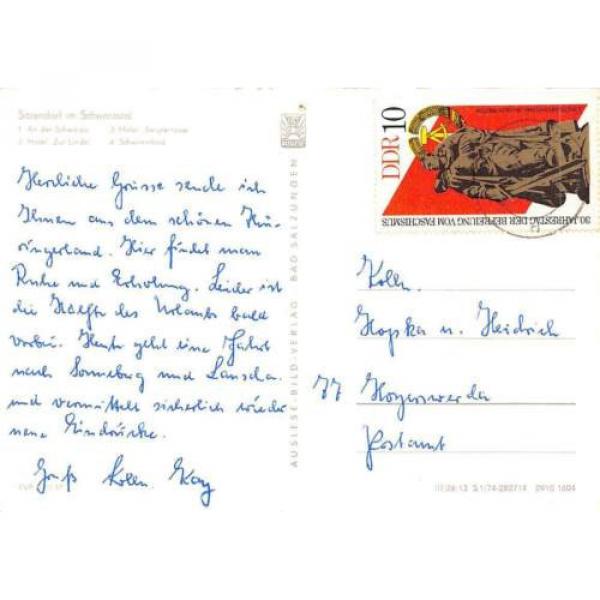 Sitzendorf im Schwarzatal
1 An der Schwarza 3 Hotel „Bergterrasse“
2 Hotel „Zur Linde“ 4 Schwimmbad
Herzliche Grüsse sende ich
Ihnen aus dem schönen Thü-
ringerland. Hier findet man
Ruhe und Erholung. Leider ist
die Hälfte des Urlaubs bald
vorbei. Heute geht eine Fahrt
nach Sonneberg und Lauscha
und vermittelt sicherlich wieder
neue Eindrücke.
Gruß Kolln. Kay
AUSLESE-BILD-VERLAG BAD SALZUNGEN
DDR 10
30. JAHRESTAG DER BEFREIUNG VOM FASCHISMUS
Kolln.
Hopka u. Heidrich
77 Hoyerswerda
Postamt
III/26/13 S 1/74-282714 0910 1604